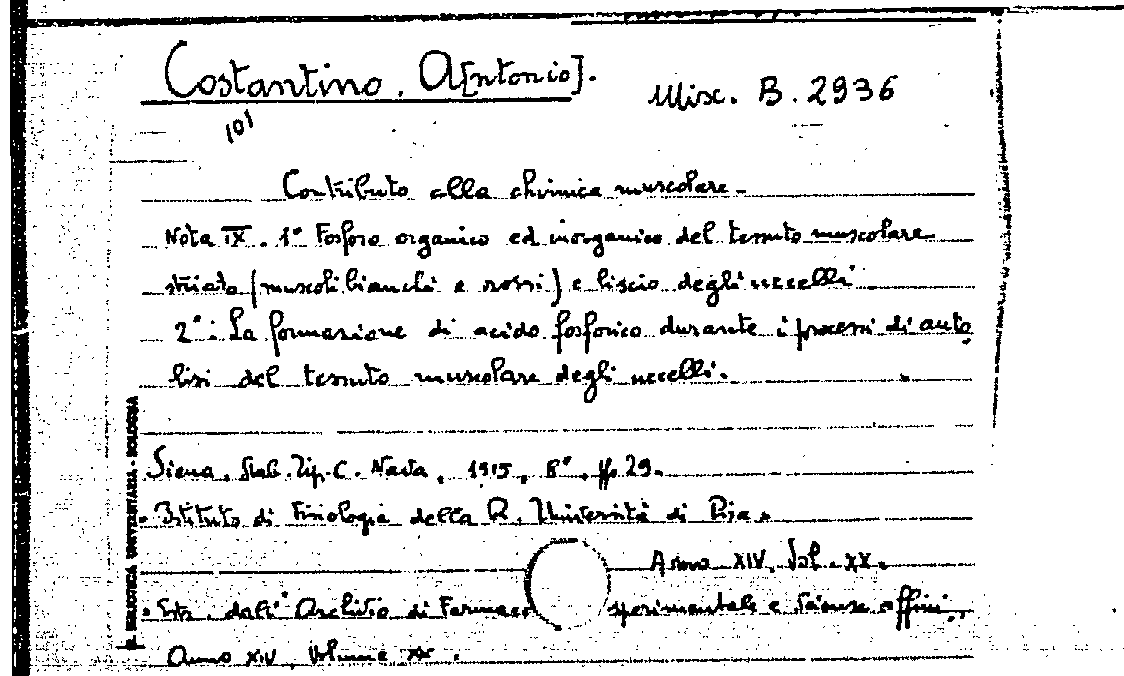 Costantino, A[ntonio].
Misc. B. 2936
101
Contributo alla chimica muscolare -
Nota IX. 1° Fosforo organico ed inorganico del tessuto muscolare
striato (muscoli bianchi e rossi) e liscio degli uccelli
2°. La formazione di acido fosforico durante i processi di auto
lisi del tessuto muscolare degli uccelli.
R. BIBLIOTECA UNIVERSITARIA - BOLOGNA
Siena. Stab. Tip. C. Nava, 1915, 8°, pp. 29.
Istituto di Fisiologia della R. Università di Pisa.
Anno XIV. Vol. XX.
Estr. dall' Archivio di Farmaco sperimentale e Scienze affini,
Anno XIV, Volume XX.